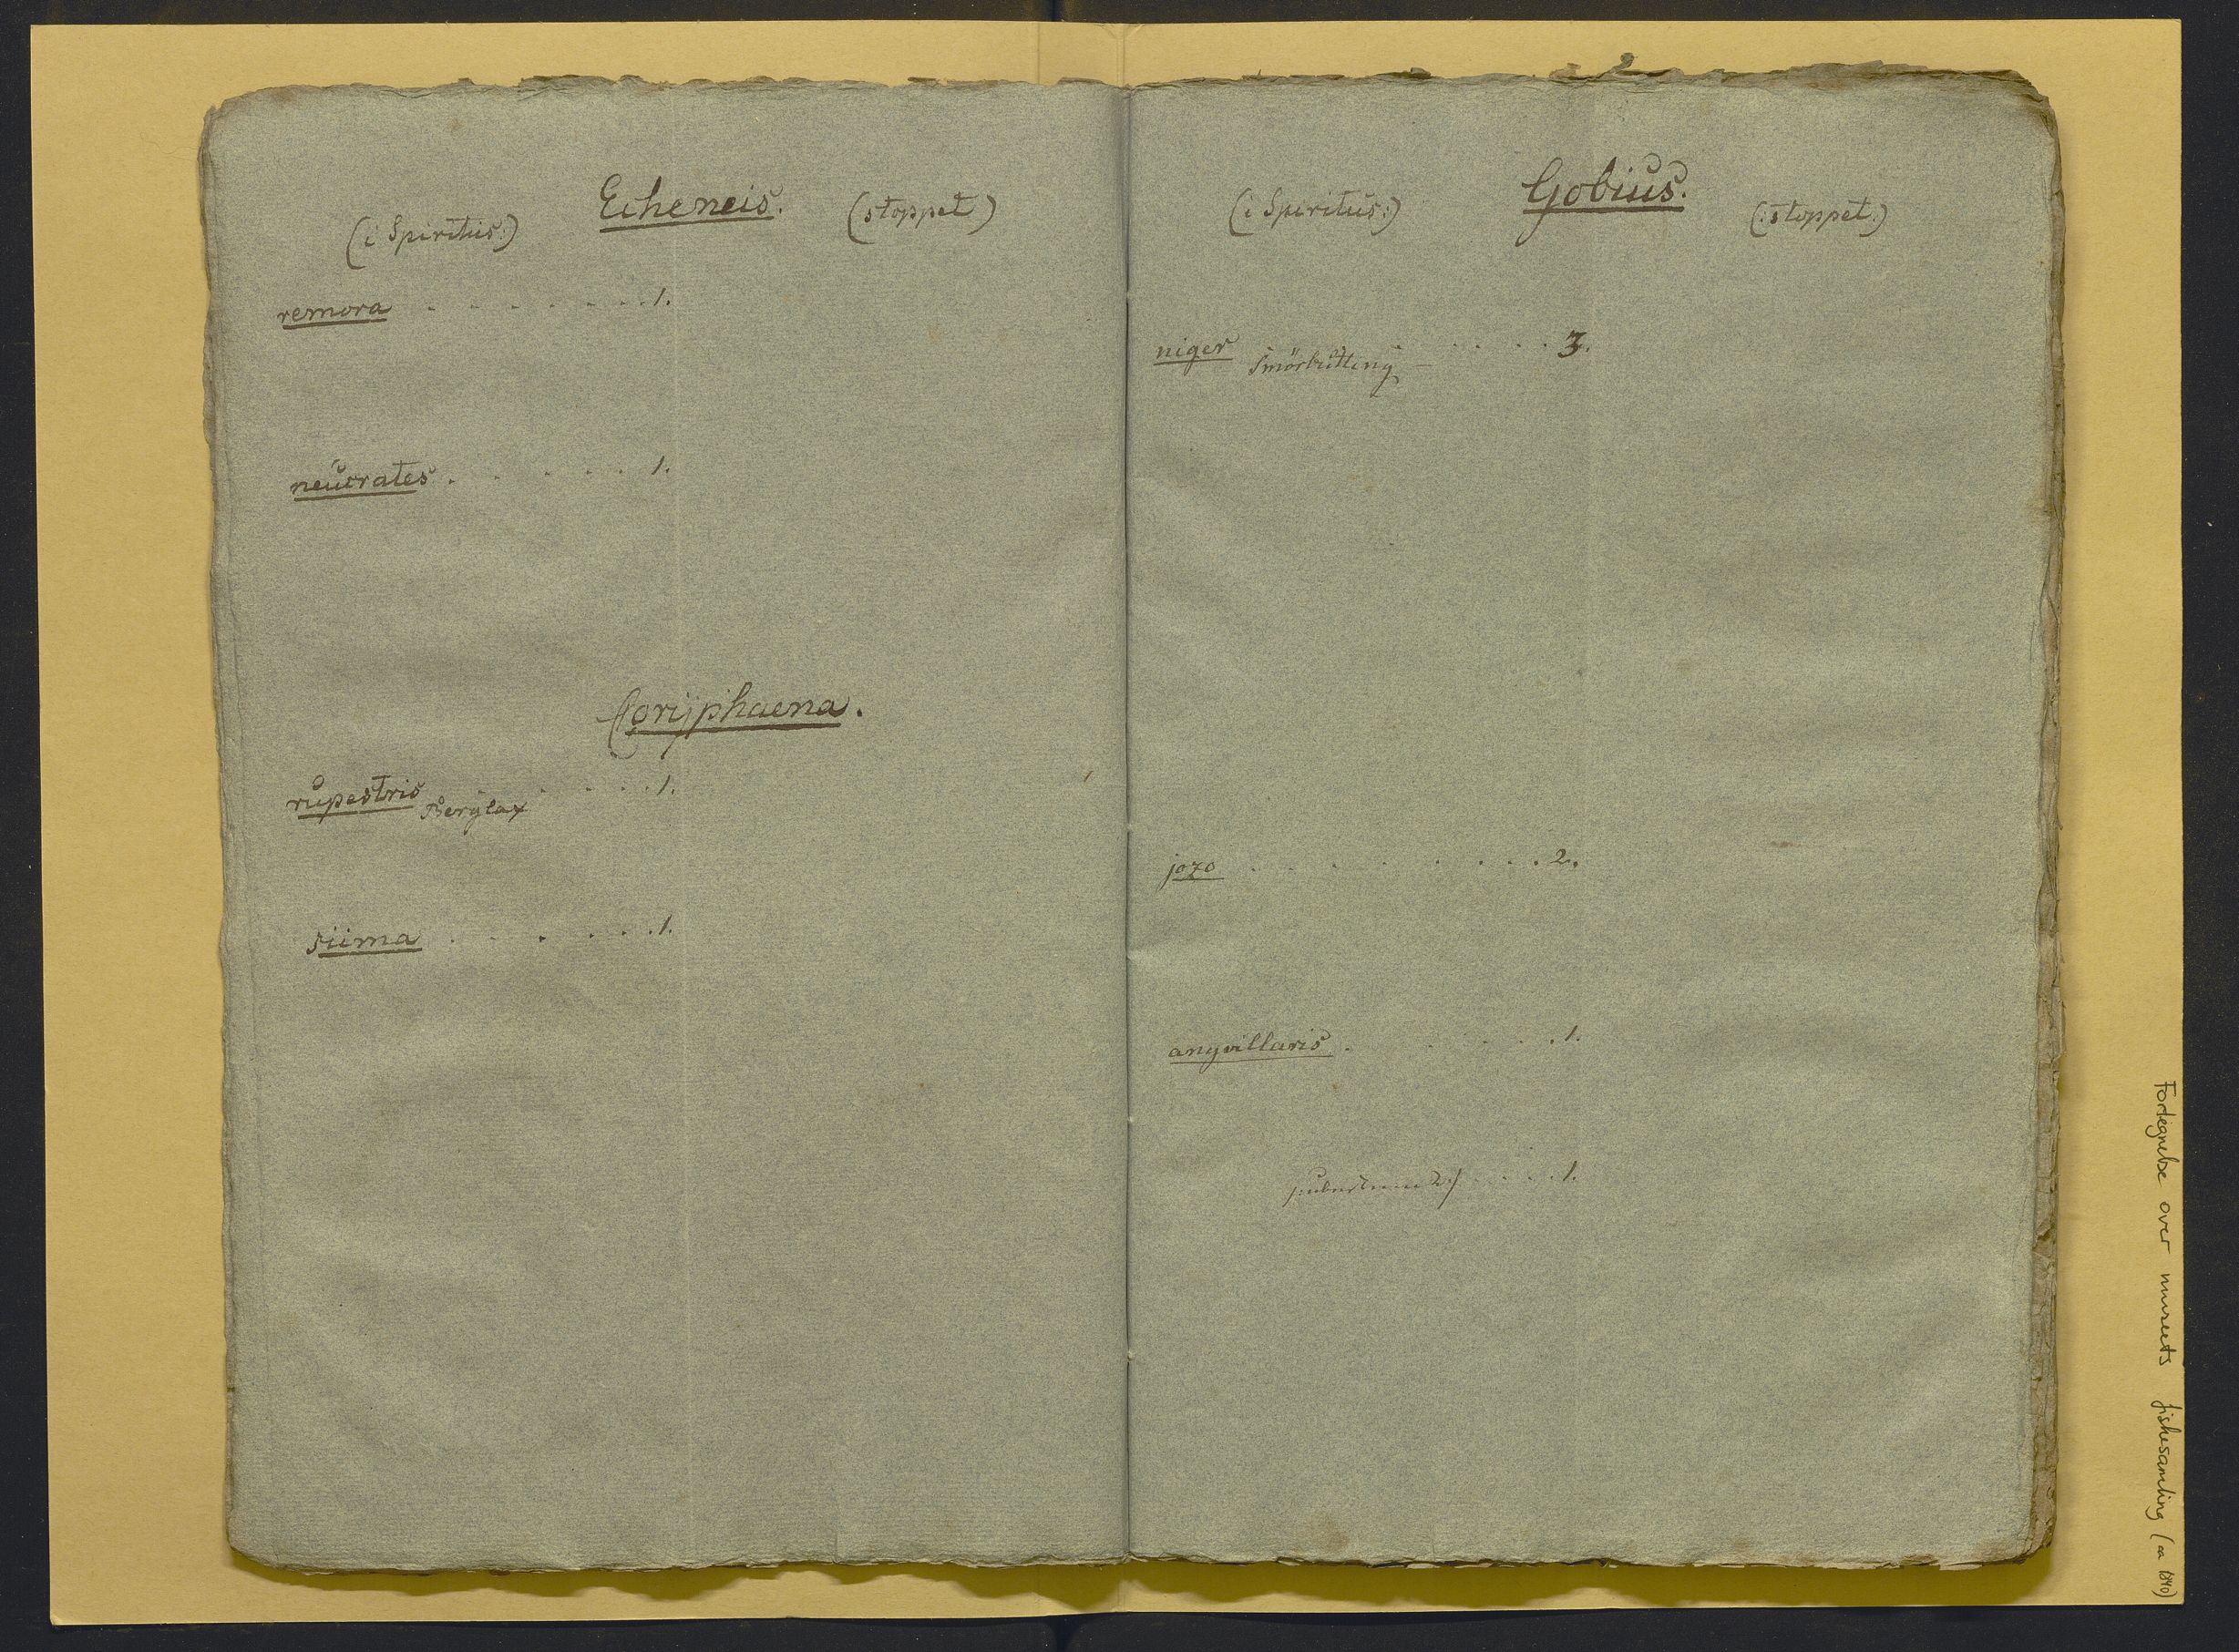 Echeneis.
(i Spiritus:) (stoppet)
remora . . . . . . . . 1.
neucrates . . . . . . 1.
Coryphaena.
rupestris Berglax . . . . 1.
siima . . . . . . . 1.
Gobius.
(i Spiritus:) (:stoppet:)
niger Smörbutting - . . . . . 3.
jozo . . . . . . . . . 2.
angvillaris . . . . . . 1.
. . . . 1.
Fortegnelse over museets fiskesamling (ca 1840)